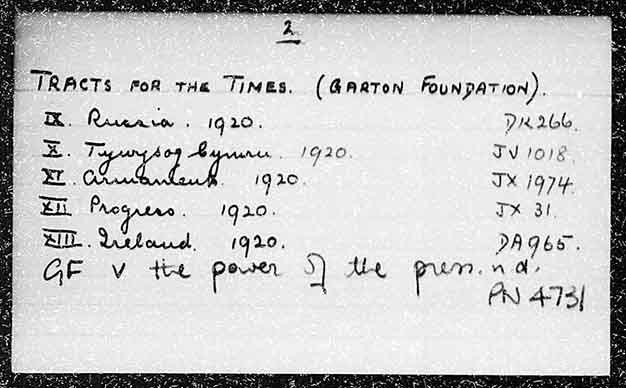 2
TRACTS FOR THE TIMES. (GARTON FOUNDATION).
IX. Russia. 1920. DK266.
X. Tywysog Cymru. 1920. JV1018.
XI. Armaments. 1920. JX1974.
XII Progress. 1920. JX 31.
XIII. Ireland. 1920. DA965.
GF V the power of the press. n.d.
PN 4731